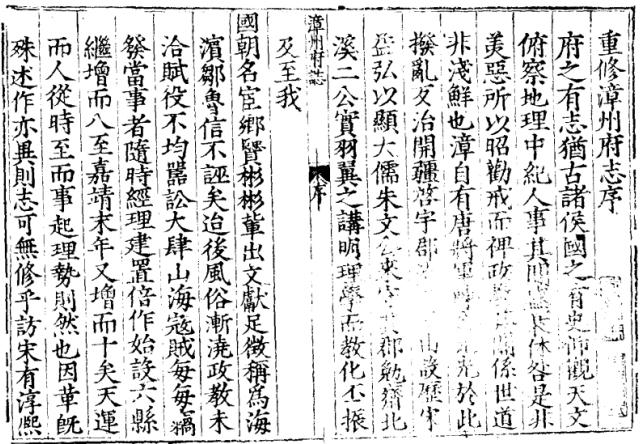 重修漳州府志序
府之有志猶古諸侯國之有史仰觀天文
俯察地理中紀人事其間休咎是非
美惡所以昭勸戒而裨政關係世道
非淺鮮也漳自有唐將軍於此
撥亂反治開疆啓宇郡設歷宋
益弘以顯大儒朱文公來守茲郡勉齋北
溪二公實羽翼之講明理學而教化丕振
漳州府志
序
及至我
國朝名宦鄉賢彬彬輩出文獻足徵稱為海
濱鄒魯信不誣矣迨後風俗漸澆政教未
洽賦役不均嚚訟大肆山海寇賊每每竊
發當事者隨時經理建置倍作始設六縣
繼增而八至嘉靖末年又增而十矣天運
而人從時至而事起理勢則然也因革既
殊述作亦異則志可無修乎訪宋有淳熙